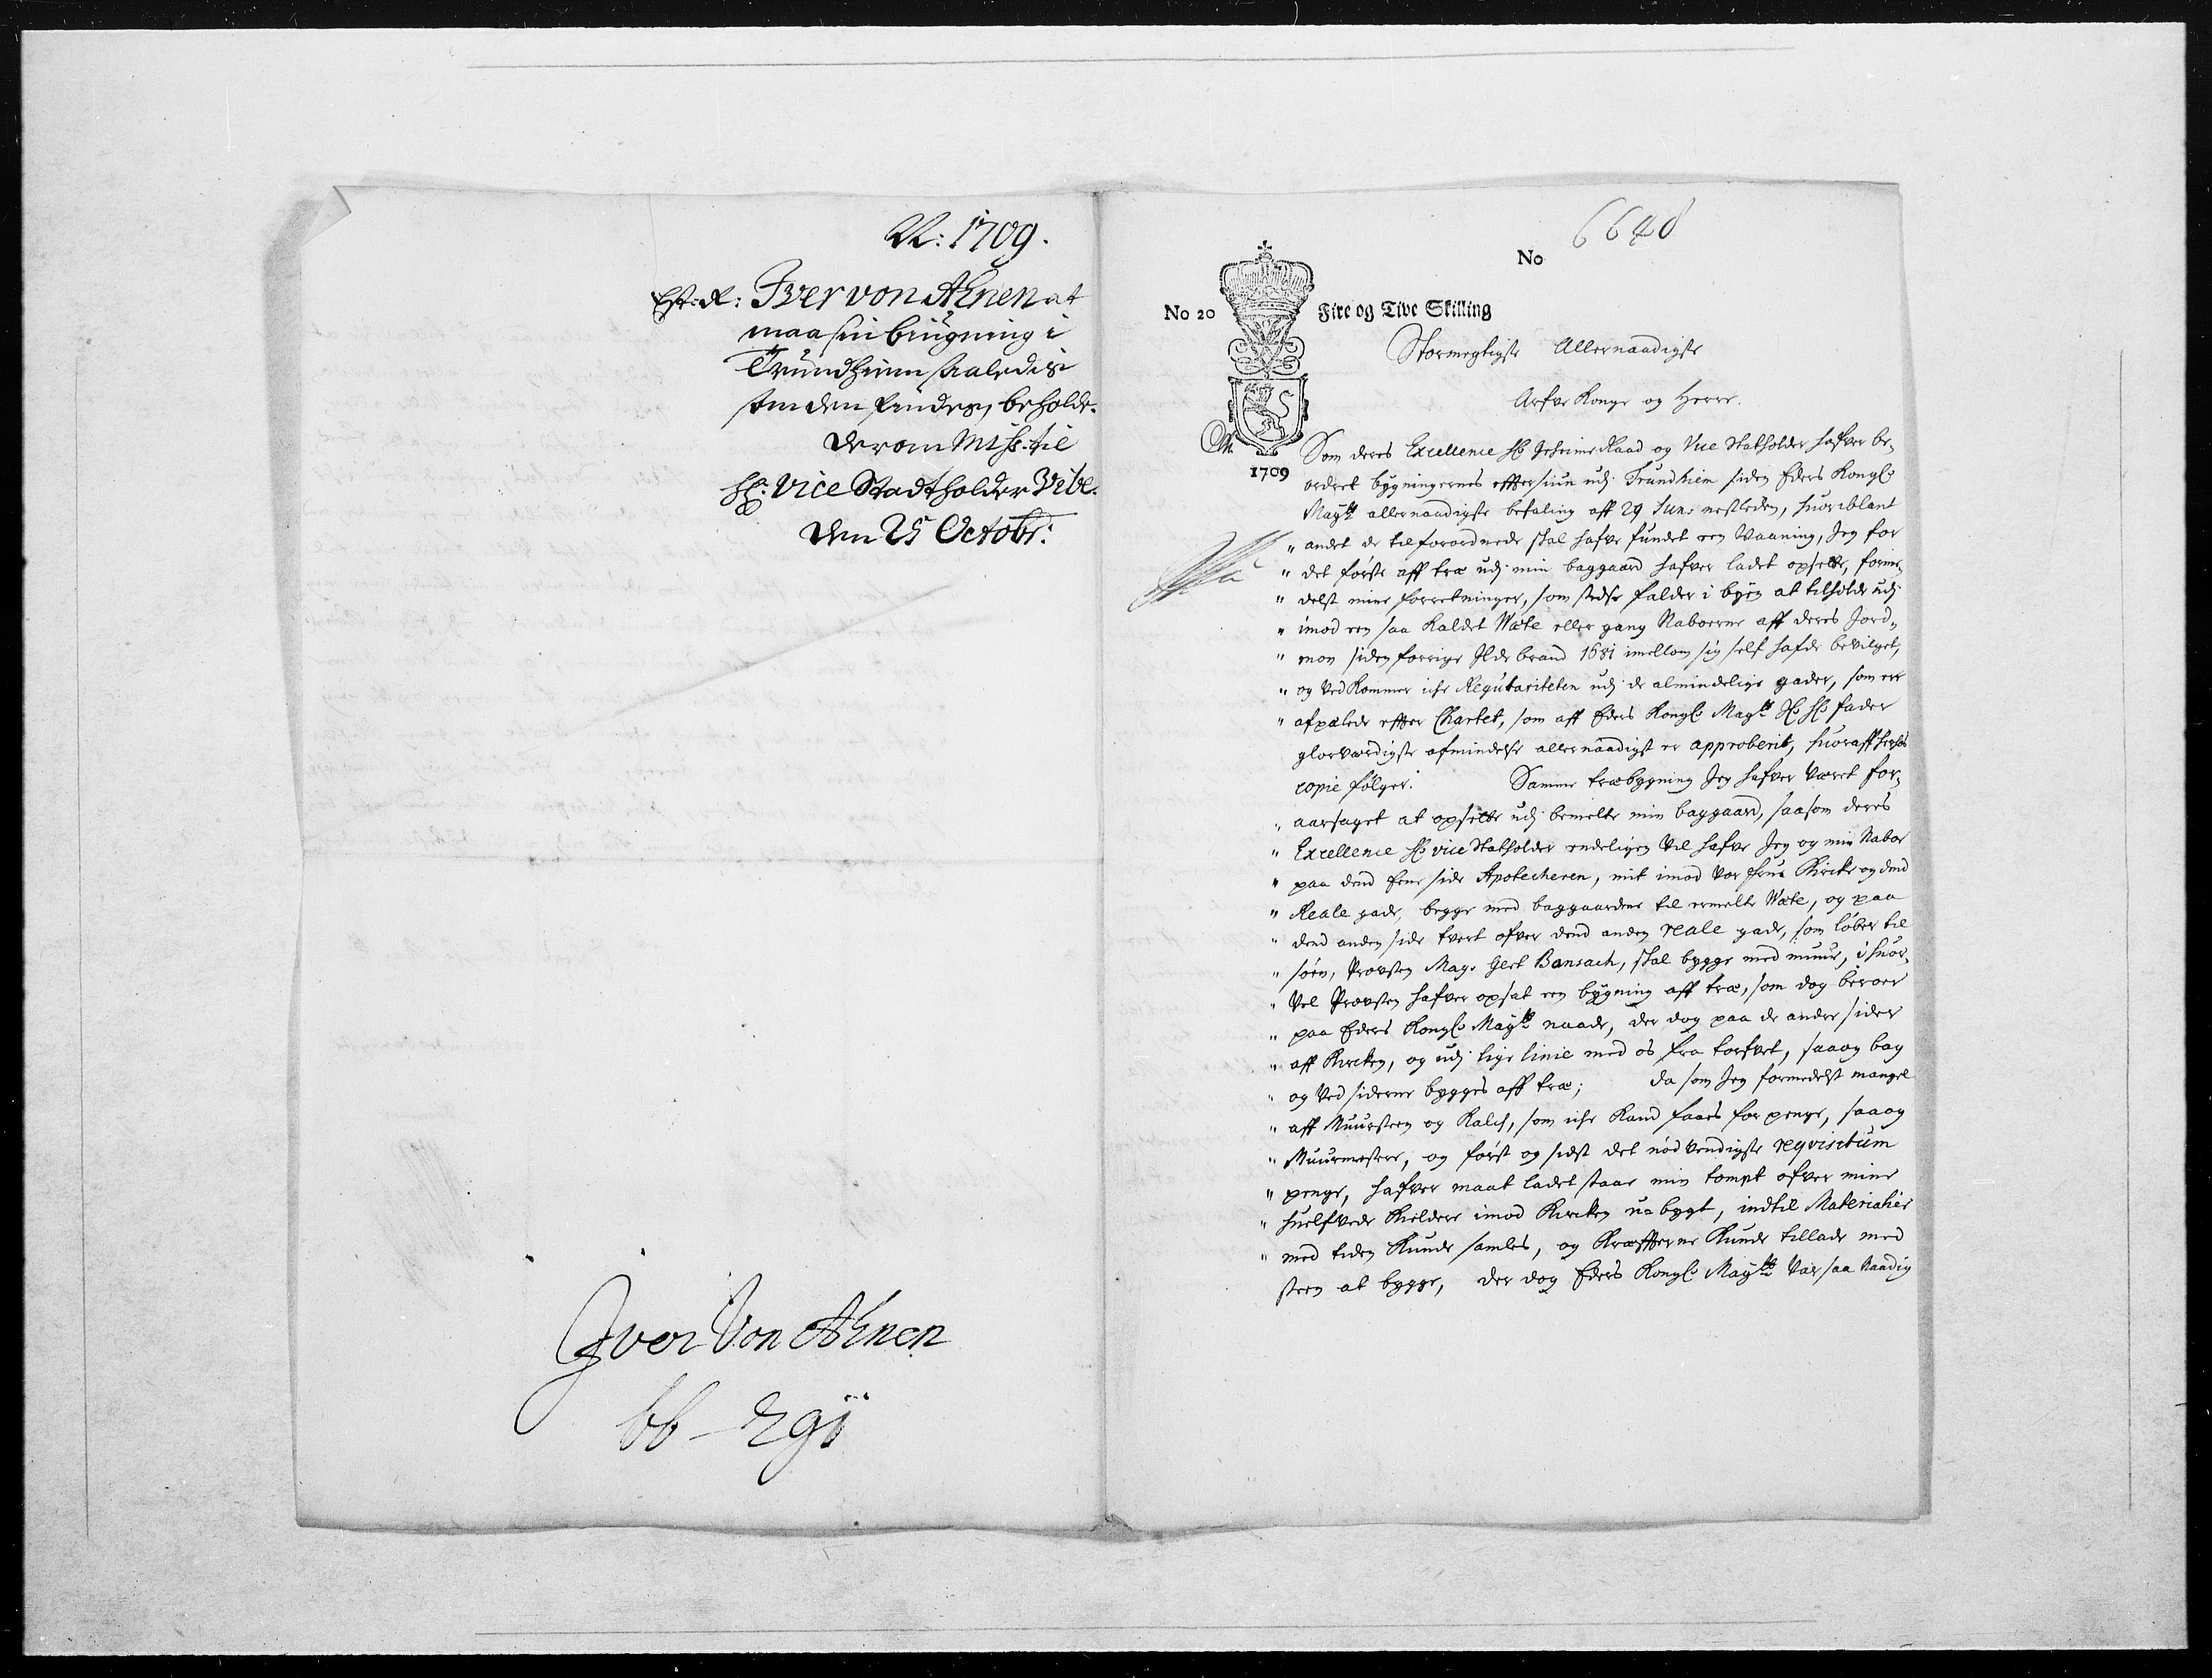 N: 1709.
Est: R: Iver von Ahnen at
maa sin bŭgning i
Trundhiem saaledis
som den findes, beholde.
derom Miss: til
Hr: Vice Stadtholder Vibe.
den 25 Octobr:
Iver Von Ahnen
bb - Egs
No 6648
No 20
Fire og Tive Skilling
1709
Stormegtigste Allernaadigste
Arfve Konge og Herre.
Som deres Excellence Hr Geheime Raad og Vice Statholder hafver be-
ordret bygningernes eftersiun udj Trundhiem siden Eders Kongl:
Maytz allernaadigste befaling aff 29 Juni nestleden, huoriblant
andet de tilforordnede skal hafve fundet een Vaaning, Jeg for
det første aff træ udj min baggaard hafver ladet opsette, forme-
delst mine forretninger, som stedse falder i byen at tilholde udj
imod een saa kaldet Wæte eller gang Naboerne aff deres Jord-
mon siden forrige Ildebrand 1681 imellom sig self hafde bevilget,
og Vedkommer iche Regulariteten udj de almindelige gader, som ere
afpælede effter Chartet, som aff Eders Kongl: Maytz Hr: Hr: fader
glorværdigste afmindelse allernaadigst er approberit, huoraff herhos
copie følger. Samme træbygning Jeg hafver været for-
aarsaget at opsette udj bemelte min baggaard, saasom deres
Excellence Hr vice Statholder endeligen vil hafve Jeg og min Nabor
paa dend Eene side Apothecheren, mit imod Vor frue Kircke og dend
Reale gade, begge med baggaardene til ermelte Wæte, og paa
dend anden side tvert ofver dend anden reale gade, som løber til
søen, Provsten Mag: Gert Bansach, skal bygge med muur, i huor-
vel Provsten hafver opsat een bygning aff træ, som dog beroer
paa Eders Kongl: Maytz naade, der dog paa de andre sider
aff Kircken, og udj lige linie med os fra torfvet, saa og bag
og Ved siderne bygges aff træ; da som Jeg formedelst mangel
aff Muursteen og Kalch, som iche Kand faaes for penge, saa og
Muurmestere, og først og sidst det nødvendigste reqvisitum
penge, hafver maat ladet staae min tompt ofver mine
huelfvede Kieldere imod Kircken ubygt, indtil Materialier
med tiden Kunde samles, og Kræffterne Kunde tillade med
steen at bygge, der dog Eders Kongl: Maytz Var saa Naadig